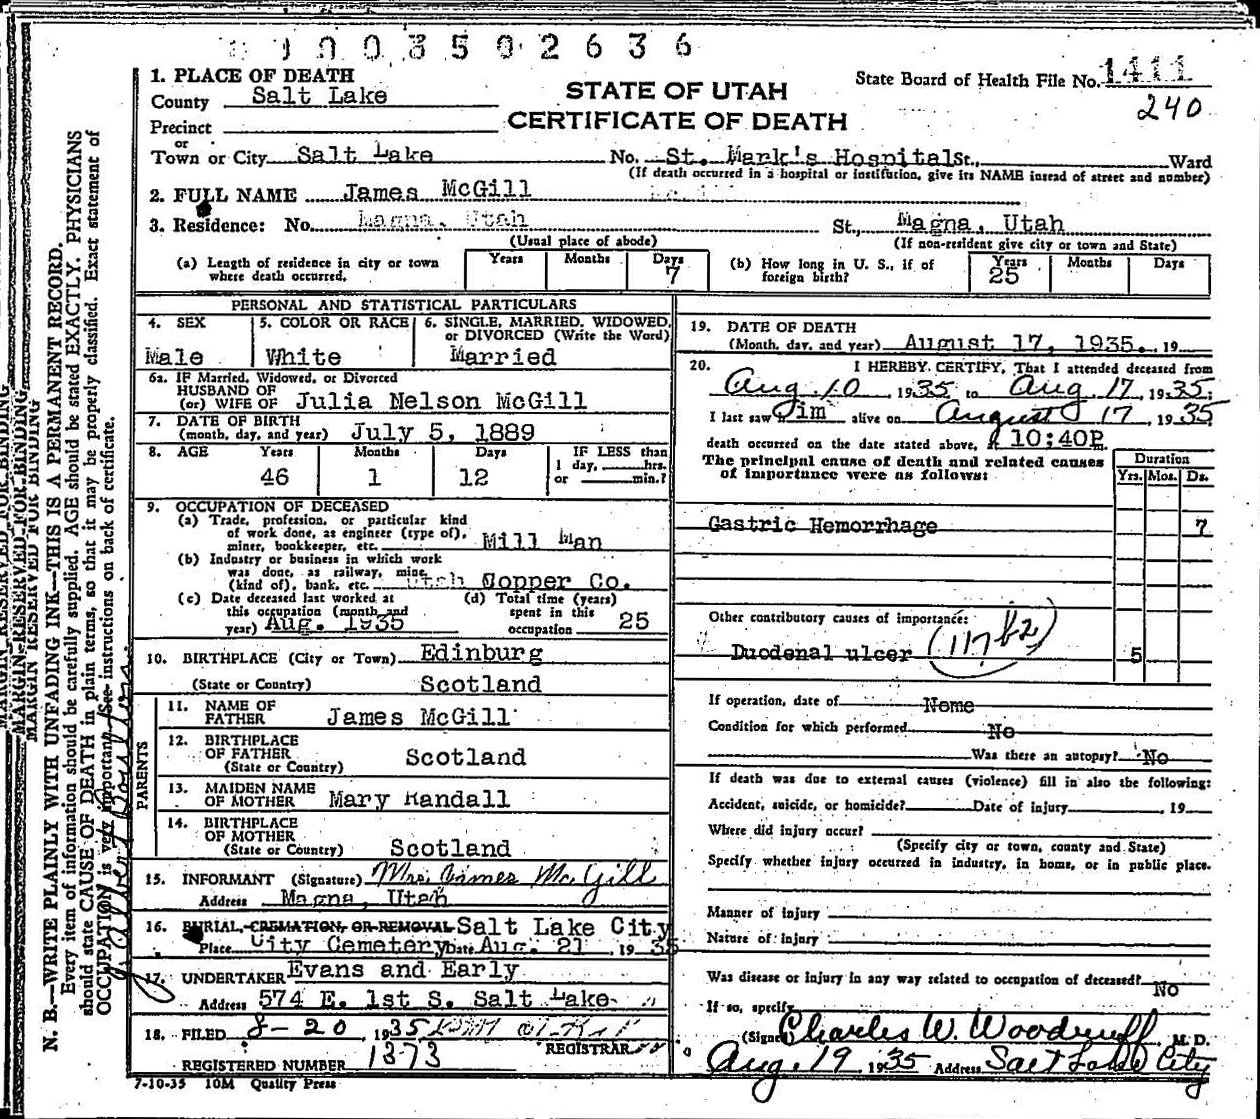 0 0 3 5 0 2 6 3 6
STATE OF UTAH
CERTIFICATE OF DEATH
State Board of Health File No. 1411
240
1. PLACE OF DEATH
County Salt Lake
Precinct
or
Town or City Salt Lake No. St. Mark's Hospital St., Ward
(If death occurred in a hospital or institution, give its NAME instead of street and number)
2. FULL NAME James McGill
3. Residence: No. Magna, Utah St., Magna, Utah
(Usual place of abode) (If non-resident give city or town and State)
(a) Length of residence in city or town where death occurred. Years Months Days 7
(b) How long in U. S., if of foreign birth? Years 25 Months Days
PERSONAL AND STATISTICAL PARTICULARS
4. SEX Male
5. COLOR OR RACE White
6. SINGLE, MARRIED, WIDOWED, or DIVORCED (Write the Word) Married
6a. IF Married, Widowed, or Divorced
HUSBAND OF
(or) WIFE OF Julia Nelson McGill
7. DATE OF BIRTH
(month, day, and year) July 5, 1889
8. AGE Years 46 Months 1 Days 12 IF LESS than 1 day, hrs. or min.?
9. OCCUPATION OF DECEASED
(a) Trade, profession, or particular kind
of work done, as engineer (type of),
miner, bookkeeper, etc. Mill Man
(b) Industry or business in which work
was done, as railway, mine
(kind of), bank, etc. Utah Copper Co.
(c) Date deceased last worked at
this occupation (month and
year) Aug. 1935
(d) Total time (years)
spent in this
occupation 25
10. BIRTHPLACE (City or Town) Edinburg
(State or Country) Scotland
PARENTS
11. NAME OF
FATHER James McGill
12. BIRTHPLACE
OF FATHER
(State or Country) Scotland
13. MAIDEN NAME
OF MOTHER Mary Randall
14. BIRTHPLACE
OF MOTHER
(State or Country) Scotland
15. INFORMANT (Signature) Mrs. James McGill
Address Magna, Utah
16. BURIAL, CREMATION, OR REMOVAL Salt Lake City
Place City Cemetery Date Aug. 21, 1935
17. UNDERTAKER Evans and Early
Address 574 E. 1st S. Salt Lake
18. FILED 8-20 1935
REGISTRAR
REGISTERED NUMBER 1373
7-10-35 10M Quality Press
19. DATE OF DEATH
(Month, day, and year) August 17, 1935. , 19
20. I HEREBY CERTIFY, That I attended deceased from
Aug. 10, 1935 to Aug 17, 1935;
I last saw him alive on August 17, 1935
death occurred on the date stated above, at 10:40P
The principal cause of death and related causes
of importance were as follows:
Duration
Yrs. Mos. Ds.
Gastric Hemorrhage 7
Other contributory causes of importance:
Duodenal ulcer (117 b2) 5
If operation, date of None
Condition for which performed No
Was there an autopsy? No
If death was due to external causes (violence) fill in also the following:
Accident, suicide, or homicide? Date of injury , 19
Where did injury occur?
(Specify city or town, county and State)
Specify whether injury occurred in industry, in home, or in public place.
Manner of injury
Nature of injury
Was disease or injury in any way related to occupation of deceased? No
If so, specify
(Signed) Charles W. Woodruff M. D.
Aug. 19 1935 Address Salt Lake City
MARGIN RESERVED FOR BINDING
N. B.—WRITE PLAINLY WITH UNFADING INK—THIS IS A PERMANENT RECORD.
Every item of information should be carefully supplied. AGE should be stated EXACTLY. PHYSICIANS
should state CAUSE OF DEATH in plain terms, so that it may be properly classified. Exact statement of
OCCUPATION is very important. See instructions on back of certificate.